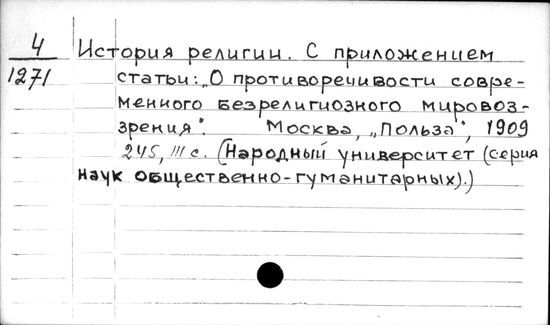 4
1271
История религии. С приложением
статьи: „О противоречивости совре-
менного безрелигиозного мировоз-
зрения". Москва, „Польза", 1909
245, III с. (Народный университет (серия
наук общественно-гуманитарных).)